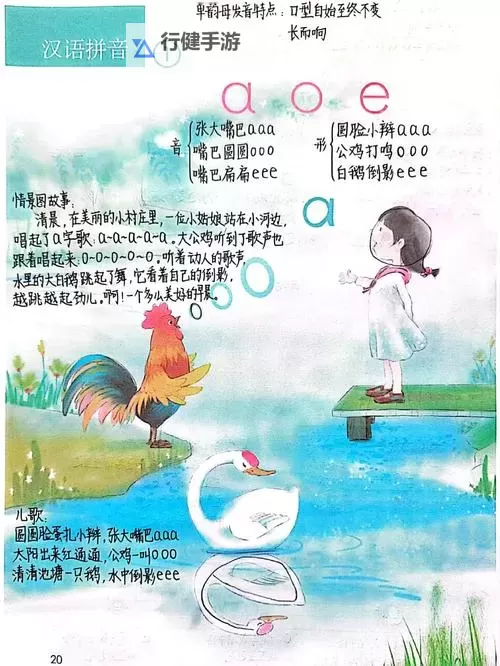 单韵母发音特点：口型自始至终不变
长而响
汉语拼音 1
行健手游
a o e
音
张大嘴巴aaa
嘴巴圆圆ooo
嘴巴扁扁eee
形
圆脸小辫aaa
公鸡打鸣ooo
白鹅倒影eee
情景图故事：
清晨，在美丽的小村庄里，一位小姑娘站在小河边，
唱起了a字歌：a~a~a~a~a。大公鸡听到了歌声也
跟着唱起来：o~o~o~o~o。听着动人的歌声，
水里的大白鹅跳起了舞，它看着自己的倒影，
越跳越起劲儿。啊！一个多么美好的早晨。
a
o o o
儿歌：
圆圆脸蛋扎小辫，张大嘴巴aaa
太阳出来红通通，公鸡一叫ooo
清清池塘一只鹅，水中倒影eee
20